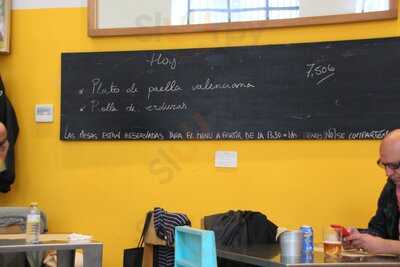 Hoy
* Plato de paella valenciana
7,50€
* Paella de verduras
LAS MESAS ESTAN RESERVADAS PARA EL MENU A PARTIR DE LA 13:30 NO SE COMPARTEN